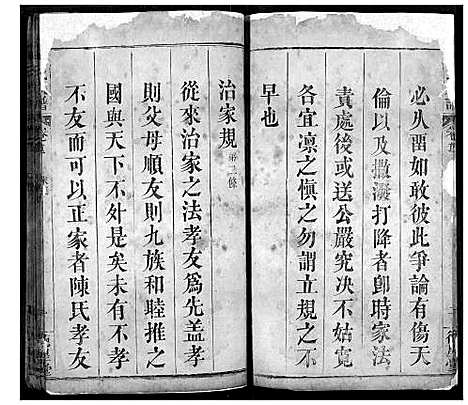 必从畱如敢彼此爭論有傷天
倫以及撒潑打降者卽時家法
責處後或送公嚴究决不姑寬
各宜凛之慎之勿謂立規之不
早也
治家規第二條
從來治家之法孝友爲先蓋孝
則父母順友則九族和睦推之
國與天下不外是矣未有不孝
不友而可以正家者陳氏孝友